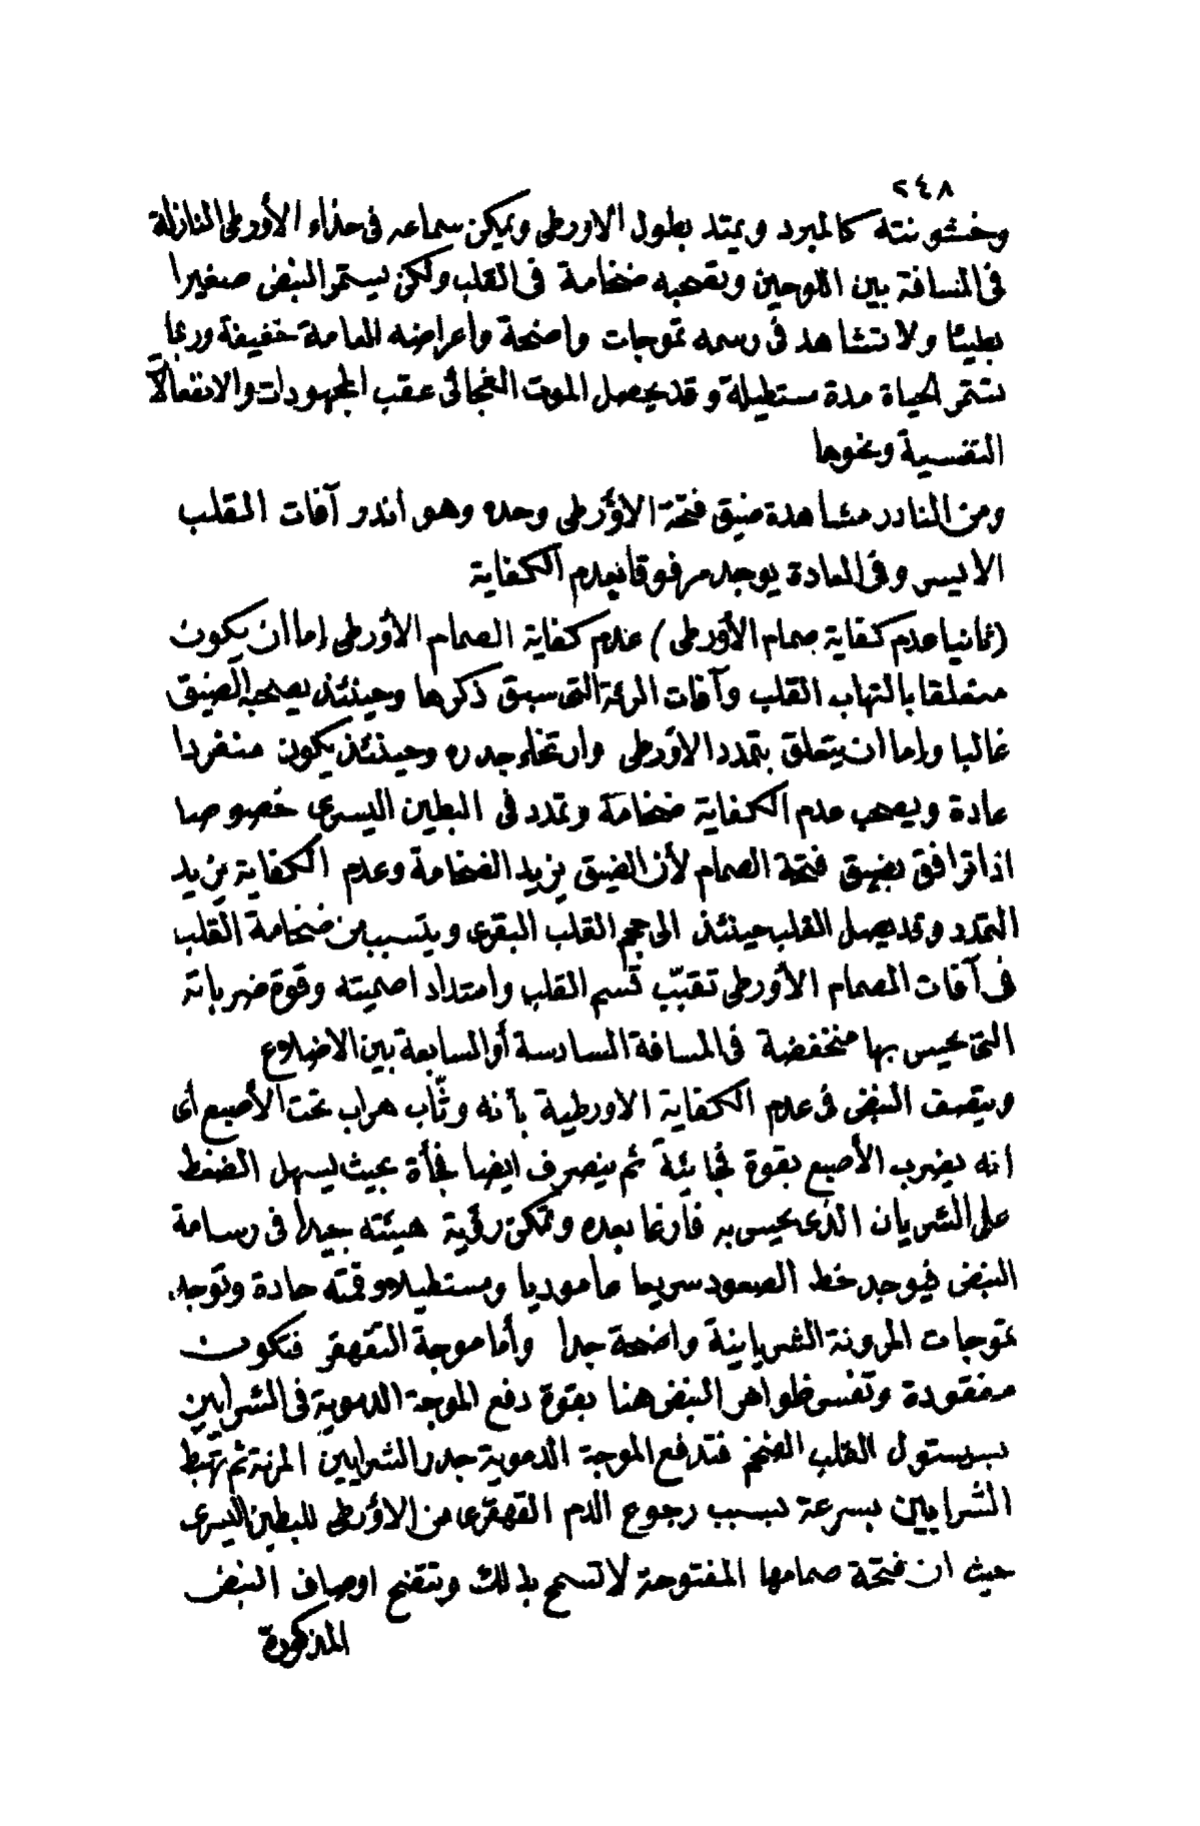 ٢٤٨
وخشونته كالمبرد ويمتد بطول الاورطى ويمكن سماعه فى حذاء الأورطى النازلة
فى المسافة بين اللوحين وتصحبه ضخامة فى القلب ولكن يستمر النبض صغيرا
بطيئا ولا تشاهد فى رسمه تموجات واضحة وأعراضه العامة خفيفة وربما
تستمر الحياة مدة مستطيلة وقد يحصل الموت الفجائى عقب المجهودات والانفعالات
النفسية ونحوها
ومن النادر مشاهدة ضيق فتحة الاؤرطى وحده وهو اندر آفات القلب
الايسر وفى العادة يوجد مرفوقا بعدم الكفاية
(ثانيا عدم كفاية صمام الأورطى) عدم كفاية الصمام الأورطى إما ان يكون
متعلقا بالتهاب القلب وآفات الرئة التى سبق ذكرها وحينئذ يصحبه الضيق
غالبا وإما ان يتعلق بتمدد الاؤرطى وارتخاء جدره وحينئذ يكون منفردا
عادة ويصحب عدم الكفاية ضخامة وتمدد فى البطين اليسرى خصوصا
اذا ترافق بضيق فتحة الصمام لأن الضيق يزيد الضخامة وعدم الكفاية يزيد
التمدد وقد يصل القلب حينئذ الى حجم القلب البقرى ويتسبب من ضخامة القلب
فى آفات الصمام الأورطى تقبّب قسم القلب وامتداد اصميته وقوة ضرباته
التى يحس بها منخفضة فى المسافة السادسة أو السابعة بين الاضلاع
ويتصف النبض فى عدم الكفاية الاورطية بأنه وثّاب هراب تحت الأصبع أى
انه يضرب الأصبع بقوة فجائية ثم ينصرف ايضا فجأة بحيث يسهل الضغط
على الشريان الذى يحس به فارغا بعده وتمكن رؤية هيئته جيدا فى رسامة
النبض فيوجد خط الصعود سريعا عاموديا ومستطيلا وقمته حادة وتوجد
تموجات المرونة الشريانية واضحة جدا وأما موجة التقهقر فتكون
مفقودة وتفسر ظواهر النبض هنا بقوة دفع الموجة الدموية فى الشرايين
بسيستول القلب الضخم فتدفع الموجة الدموية جدر الشرايين المرنة ثم تهبط
الشرايين بسرعة بسبب رجوع الدم القهقرى من الاؤرطى للبطين اليسرى
حيث ان فتحة صمامها المفتوحة لا تسمح بذلك وتتضح اوصاف النبض
المذكورة